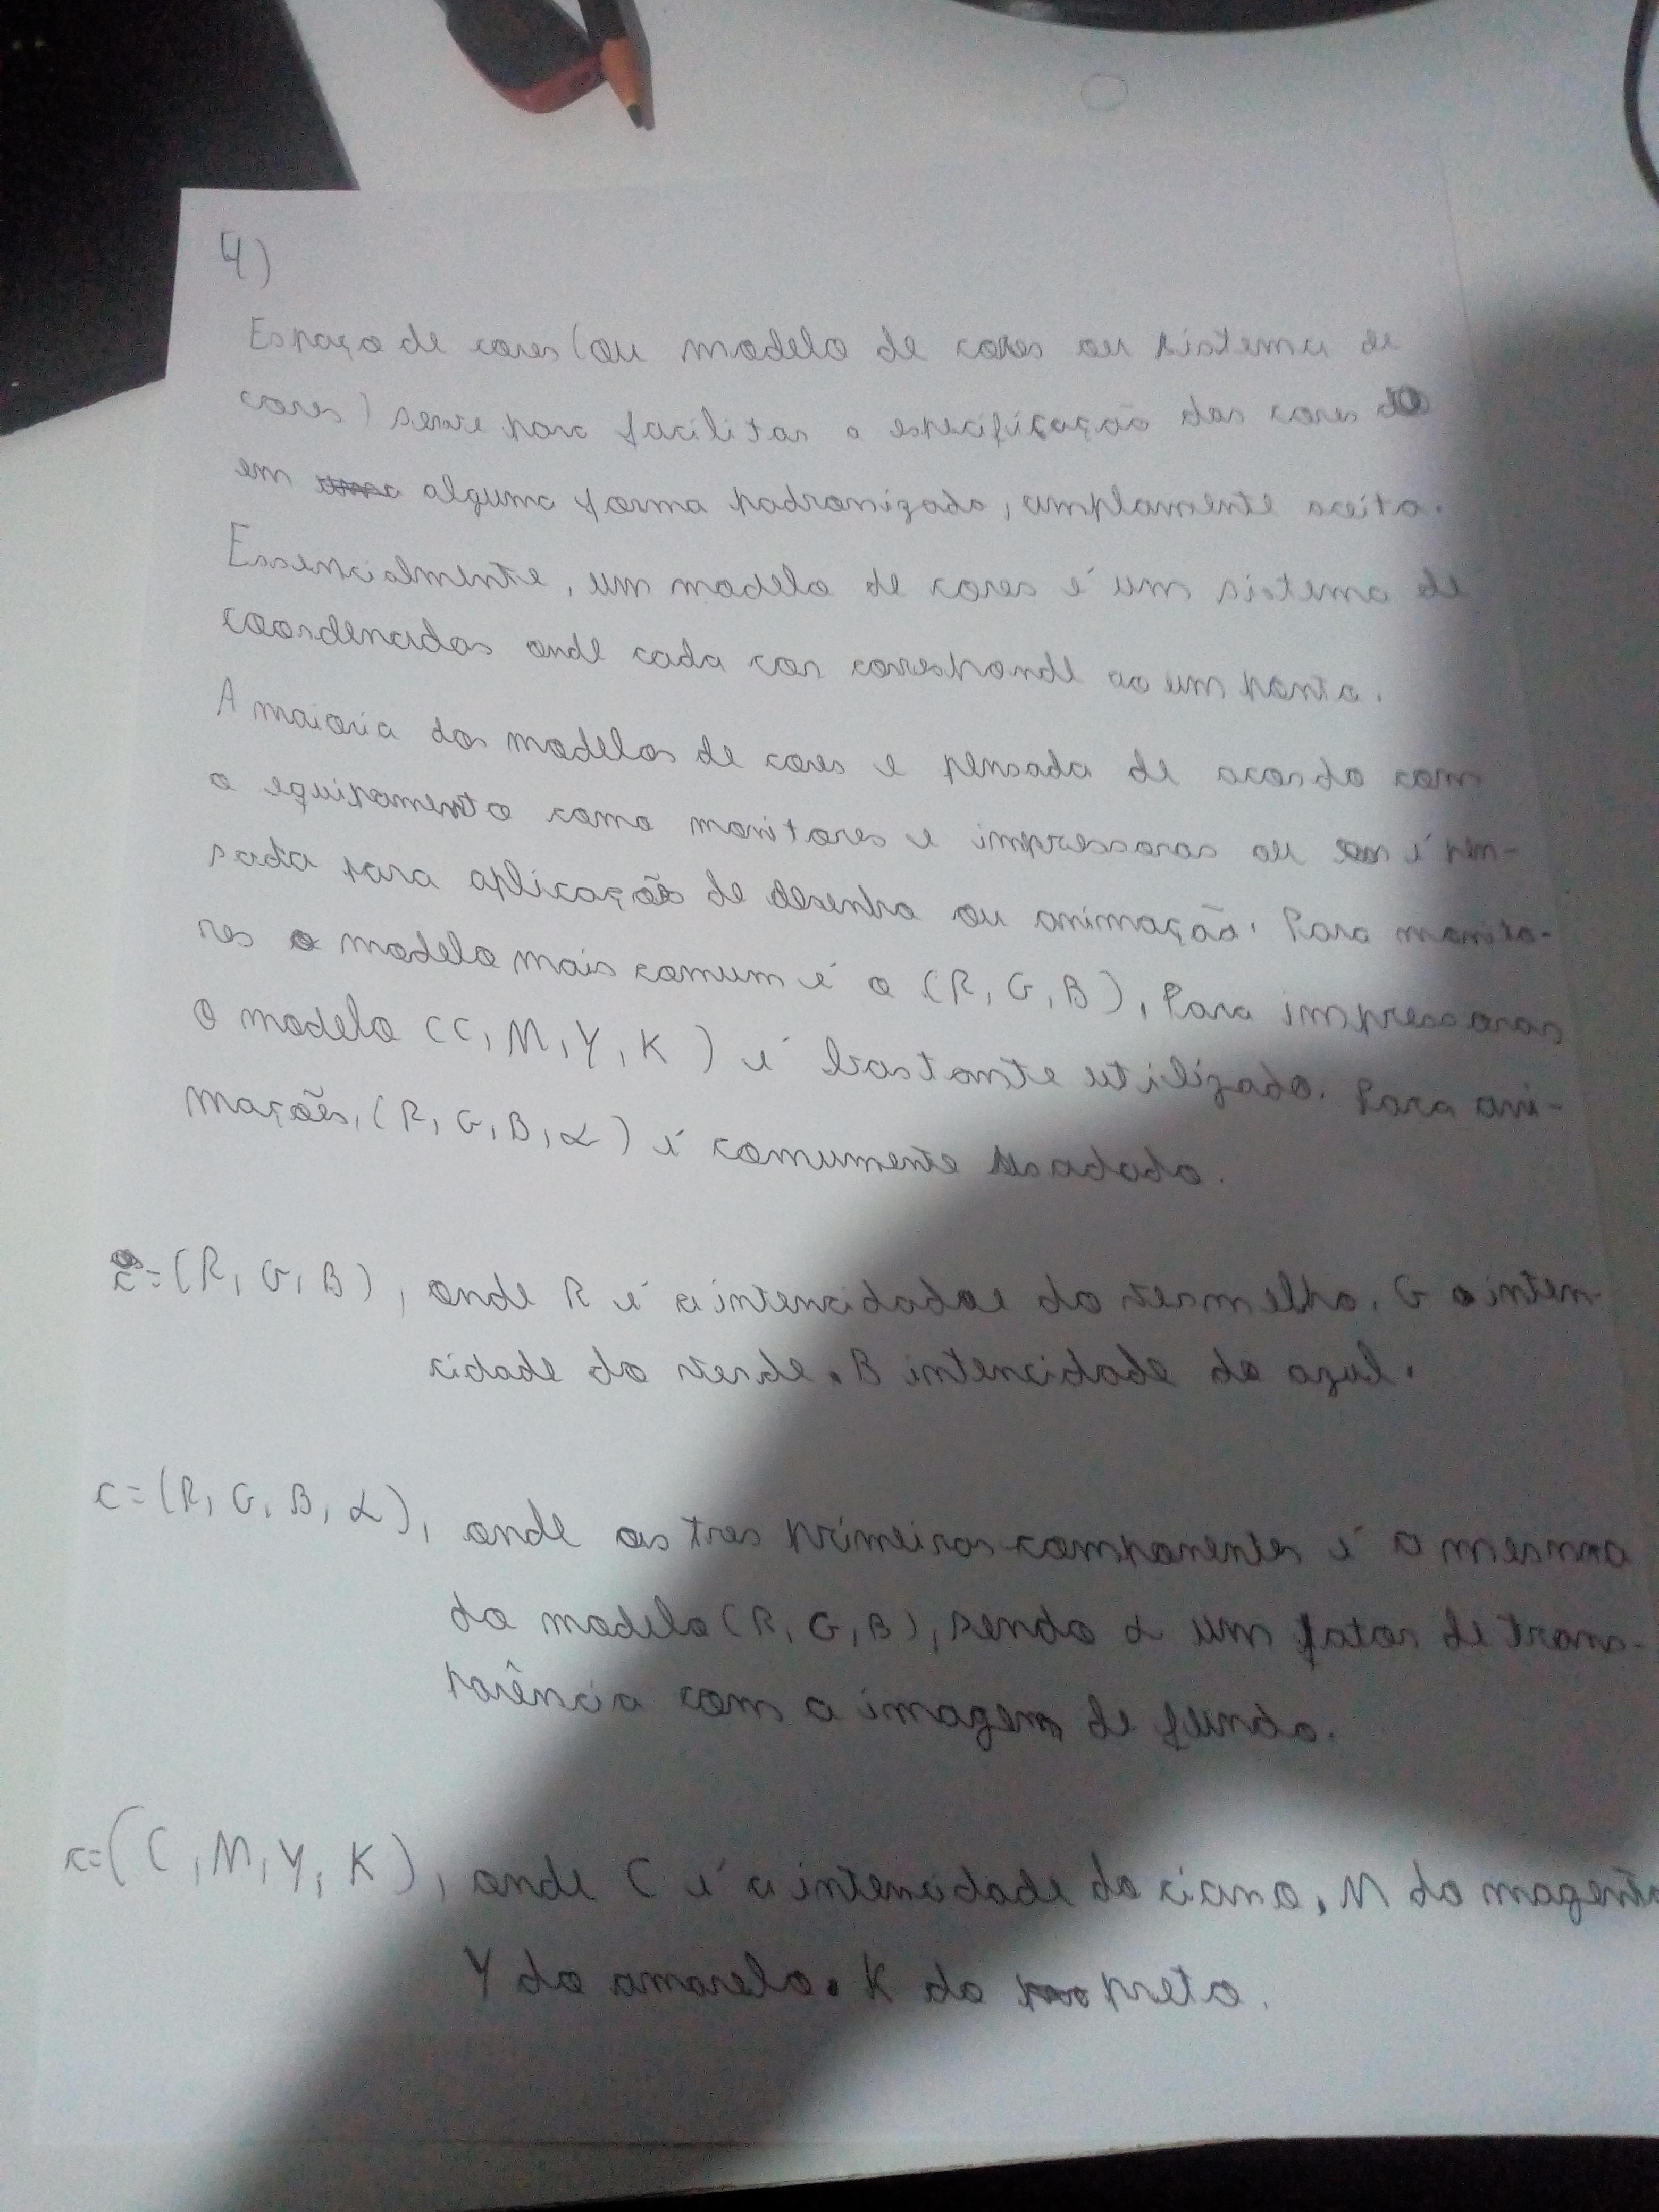 4)
Espaço de cores (ou modelo de cores ou sistema de
cores) serve para facilitar a especificação das cores
em alguma forma padronizada, amplamente aceita.
Essencialmente, um modelo de cores é um sistema de
coordenadas onde cada cor corresponde ao um ponto.
A maioria dos modelos de cores e pensada de acordo com
o equipamento como monitores e impressoras ou é pen-
sada para aplicação de desenho ou animação. Para monito-
res o modelo mais comum é o (R, G, B), Para impressoras
O modelo (C, M, Y, K) é bastante utilizado. Para ani-
mações, (R, G, B, α) é comumente
c=(R, G, B), onde R é a intencidade do vermelho. G a inten-
cidade do verde. B intencidade do azul.
c=(R, G, B, α), onde as tres primeiras componentes é o mesmo
do modelo (R, G, B), sendo α um fator de trans-
parência com a imagem de fundo.
c=(C, M, Y, K), onde C é a intencidade do ciano. M do magenta
Y do amarelo. K do preto.